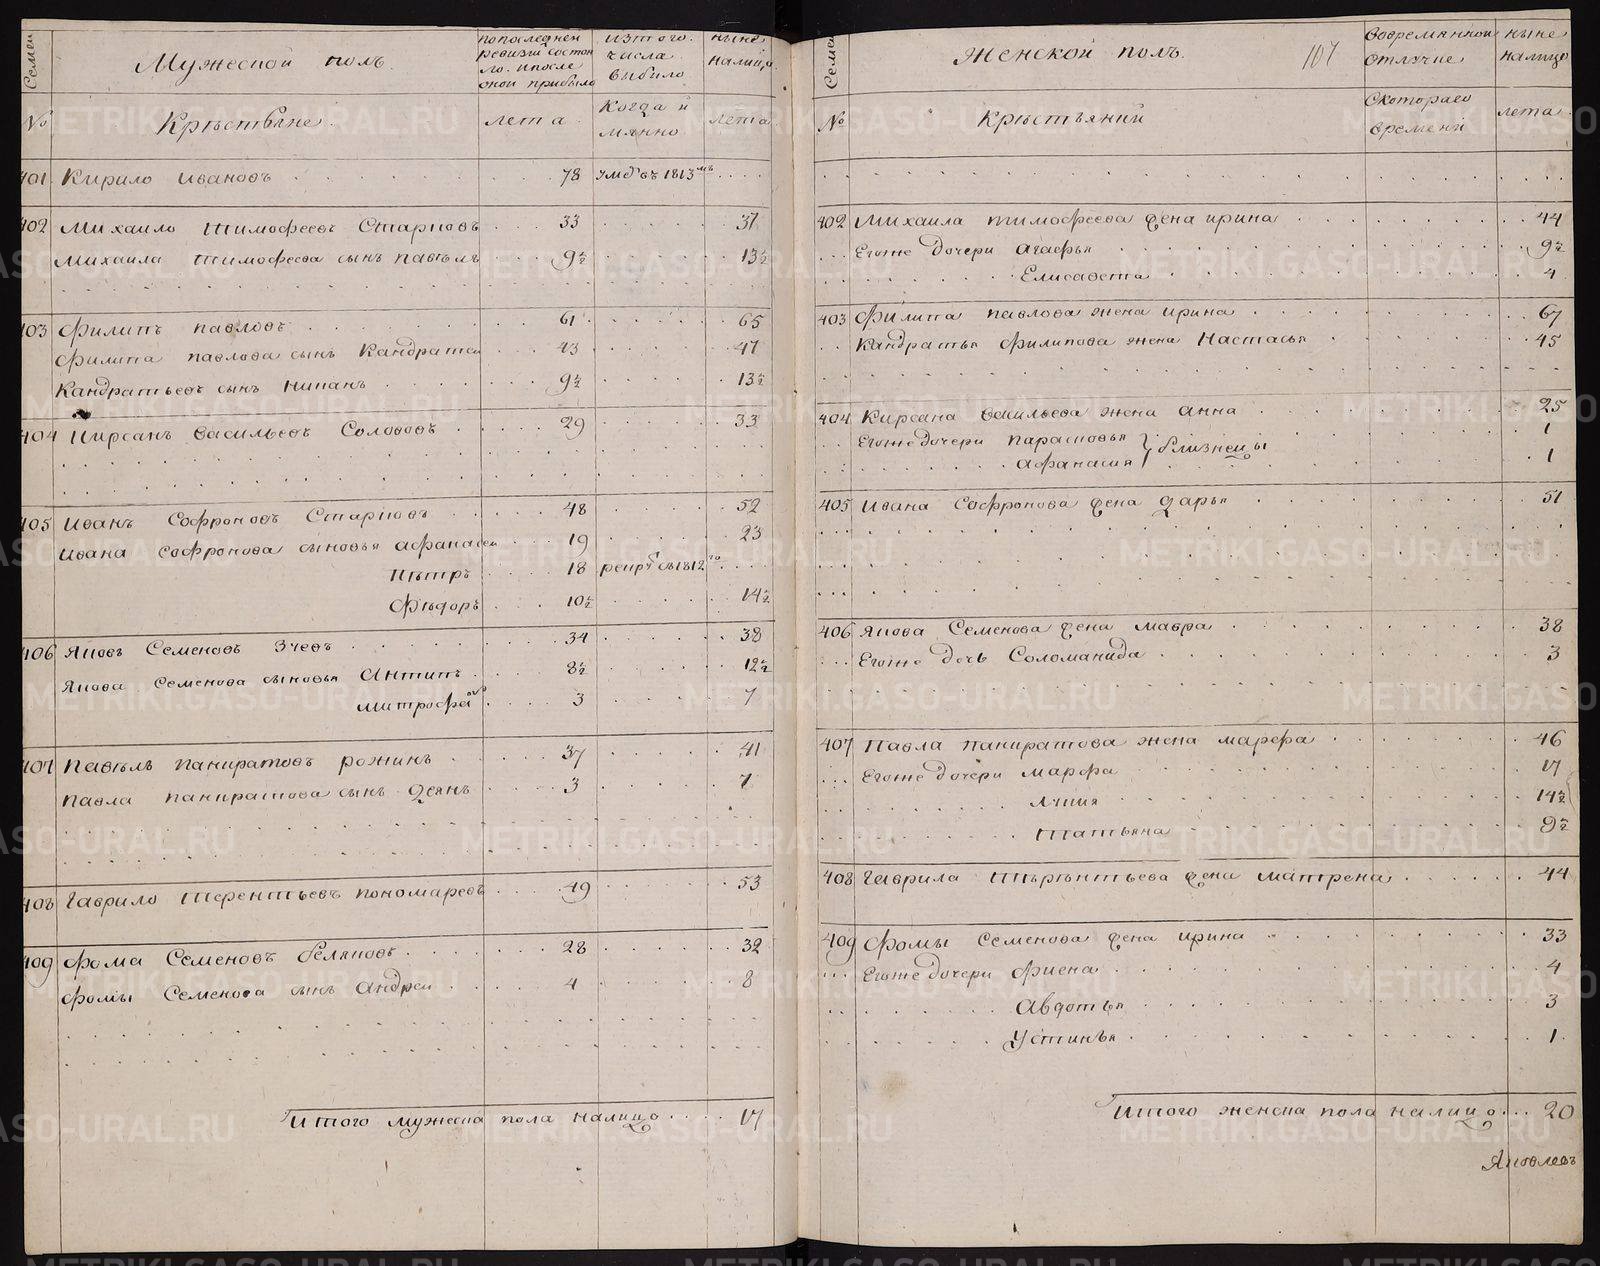 Семеи
Мужеской полъ.
попоследнеи
ревизiи состоя
ло. ипосле
оной прибыло
изтого.
числа
выбыло
ныне
налицо
№
Крестьяне.
лета
Когда и
мянно
лета
401. Кирило Ивановъ 78 умеръ 1813мъ
402 Михаило Тимофеевъ Старковъ 33 37
Михаила Тимофеева сынъ Павелъ 9½ 13½
403 Филипъ Павловъ 61 65
Филипа Павлова сынъ Кандратей 43 47
Кандратьевъ сынъ Никанъ 9½ 13½
404 Кирсанъ Васильевъ Солововъ 29 33
405 Иванъ Софроновъ Старковъ 48 52
Ивана Софронова сыновья Афанасеи 19 23
Петръ 18 рекрут въ 1812го
Фёдоръ 10½ 14½
406 Яковъ Семеновъ Зчевъ 34 38
Якова Семенова сыновья Антипъ 8½ 12½
Митрофан 3 7
407 Павелъ Панкратовъ рожинъ 37 41
Павла Панкратова сынъ Демянъ 3 7
408 Гаврило Терентьевъ Пономаревъ 49 53
409 Фома Семеновъ Беляновъ 28 32
Фомы Семенова сынъ Андреи 4 8
Итого мужеска пола налицо 17
Семеи
Женской полъ.
107
вовременной
отлучке
ныне
налицо
№
Крестьянки
Скотораго
времени
лета
402 Михаила Тимофеева жена Ирина 44
Егоже дочери Агафья 9½
Елисавета 4
403 Филипа Павлова жена Ирина 67
Кандратья Филипова жена Настасья 45
404 Кирсана Васильева жена Анна 25
Егоже дочери Парасковья 1
Афанасия близнецы 1
405 Ивана Софронова жена Дарья 51
406 Якова Семенова жена Мавра 38
Егоже дочь Соломанида 3
407 Павла Панкратова жена Марфа 46
Егоже дочери Марфа 17
Лукия 14½
Татьяна 9½
408 Гаврила Терентьева жена Матрена 44
409 Фомы Семенова жена Ирина 33
Егоже дочери Фиена 4
Авдотья 3
Устинья 1
Итого женска пола налицо 20
Яковлевъ
METRIKI.GASO-URAL.RU